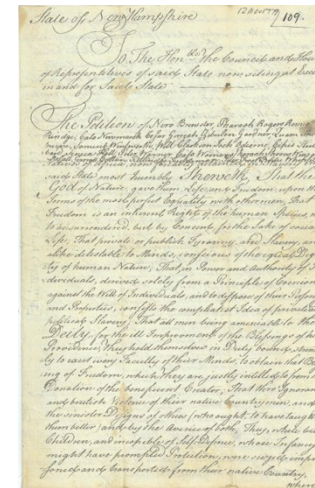 State of New Hampshire
12 Nov 1779
109.
To The Honble The Council and House
of Representatives of said State now sitting at Exeter
in and for said State
The Petition of Nero Brewster, Pharaoh Rogers, Romeo
Rindge, Cato Newmarch, Cesar Gerrish, Zebulon Gardner, Quam
Samuel Wentworth, Will Clarkson, Jack Odiorne, Cipio Hubbard
said State most humbly Sheweth, That the
God of Nature, gave them, Life and Freedom, upon the
Terms of the most perfect Equality with other men; That
Freedom is an inherent Right of the human Species, not
to be surrendered, but by Consent, for the Sake of social
Life; That private or publick Tyranny, and Slavery, are
alike detestable to Minds, conscious of the equal Dig-
ity of human Nature; That in Power and Authority of In-
dividuals, derived solely from a Principle of Coercion,
against the Will of Individuals, and to dispose of their Persons
and Properties, consists the compleatest Idea of private and
political Slavery; That all men being amenable to the
Deity, for the ill Improvement of the Blessings of his
Providence, They hold themselves in Duty bound, strenuous-
ly to exert every Faculty of their Minds, to obtain that Bless-
ing of Freedom, which they are justly intitled to from the
Donation of the beneficent Creator; That thro' Ignorance
and brutish Violence of their native Countrymen, and by
the sinister Designs of others (who ought to have taught
them better) and by the Avarice of both; They, while but
Children, and incapable of Self-Defence, whose Infancy
might have prompted Protection, were seized, impri-
soned and transported from their native Country,
where